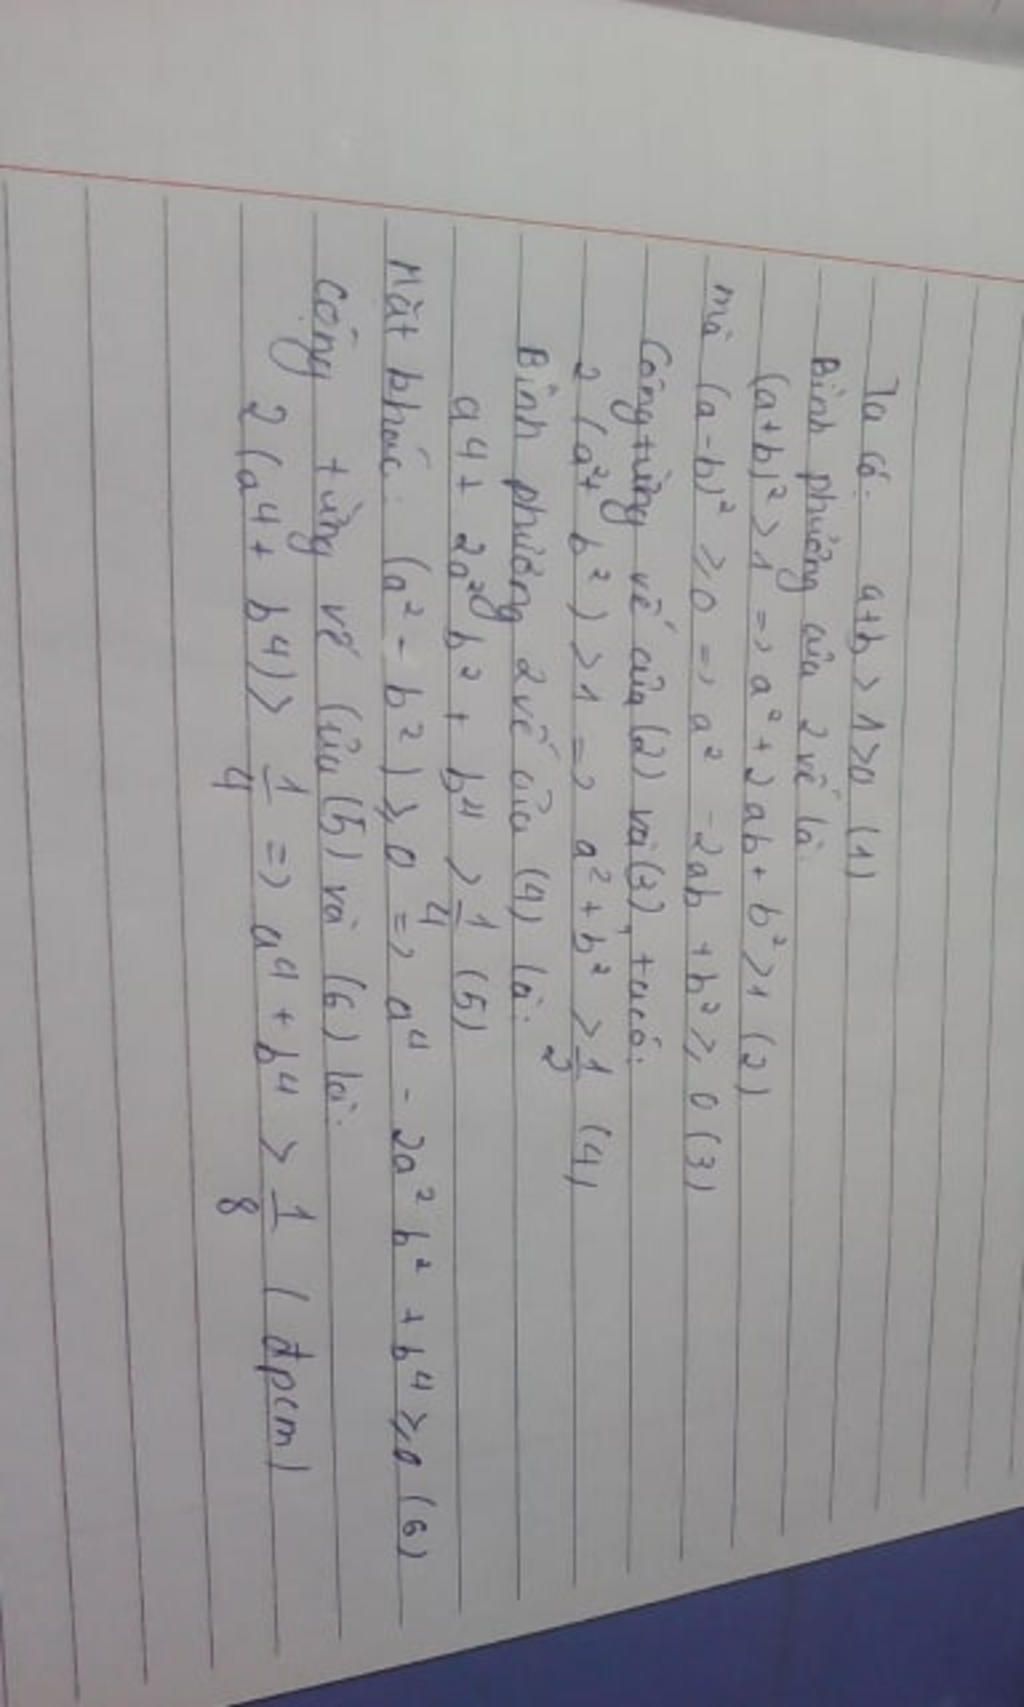 Ta có: a+b > 1 > 0 (1)
Bình phương của 2 vế là:
(a+b)² > 1 => a² + 2ab + b² > 1 (2)
mà (a-b)² ≥ 0 => a² - 2ab + b² ≥ 0 (3)
Cộng từng vế của (2) và (3), ta có:
2 (a² + b²) > 1 => a² + b² > 1/2 (4)
Bình phương 2 vế của (4) là:
a⁴ + 2a²b² + b⁴ > 1/4 (5)
Mặt khác: (a² - b²) ≥ 0 => a⁴ - 2a²b² + b⁴ ≥ 0 (6)
Cộng từng vế của (5) và (6) là:
2 (a⁴ + b⁴) > 1/4 => a⁴ + b⁴ > 1/8 (đpcm)